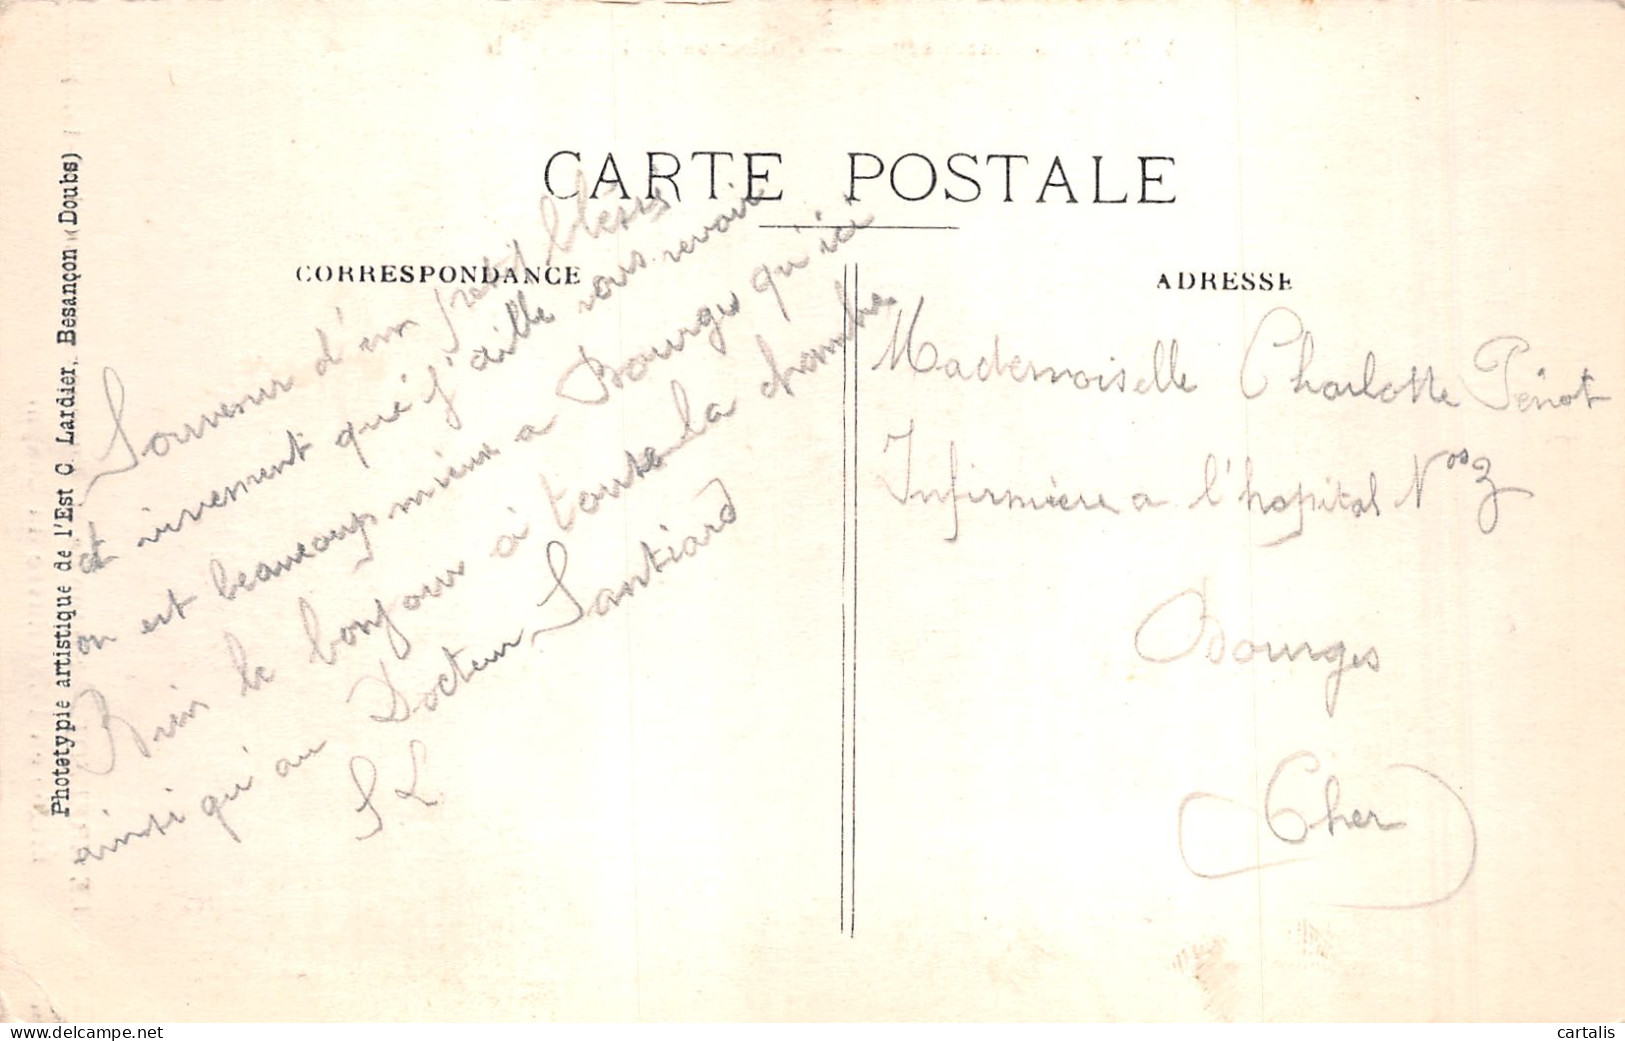 CARTE POSTALE
CORRESPONDANCE
ADRESSE
Photetypie artistique de l'Est C. Lardier, Besançon (Doubs)
Souvenir d'un petit bléssé
et vivement que j'aille vous revoir
on est beaucoup mieux a Bourges qu'ici
Bien le bonjour à toute la chambre
ainsi qu'au Docteur Santiard
S L
Mademoiselle Charlotte Pénot
Infirmière a l'hopital Nos 3
Bourges
Cher
www.delcampe.net
cartalis